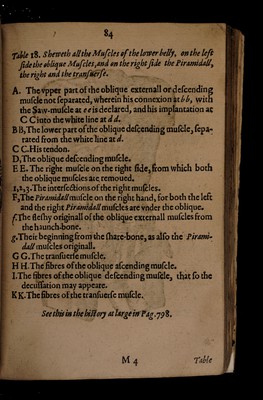 84
Table 18. Sheweth all the Muscles of the lower belly, on the left
side the oblique Muscles, and on the right side the Piramidall,
the right and the transuerse.
A. The vpper part of the oblique externall or descending
muscle not separated, wherein his connexion at b b, with
the Saw-muscle at e e is declared, and his implantation at
C C into the white line at d d.
B B, The lower part of the oblique descending muscle, sepa-
rated from the white line at d.
C C. His tendon.
D, The oblique descending muscle.
E E. The right muscle on the right side, from which both
the oblique muscles are remoued.
1,2,3. The intersections of the right muscles.
F, The Piramidall muscle on the right hand, for both the left
and the right Piramidall muscles are vnder the oblique.
f. The fleshy originall of the oblique externall muscles from
the haunch-bone.
g, Their beginning from the share-bone, as also the Pirami-
dall muscles originall.
G G. The transuerse muscle.
H H. The fibres of the oblique ascending muscle.
I. The fibres of the oblique descending muscle, that so the
decussation may appeare.
K K. The fibres of the transuerse muscle.
See this in the history at large in Pag. 798.
M 4
Table